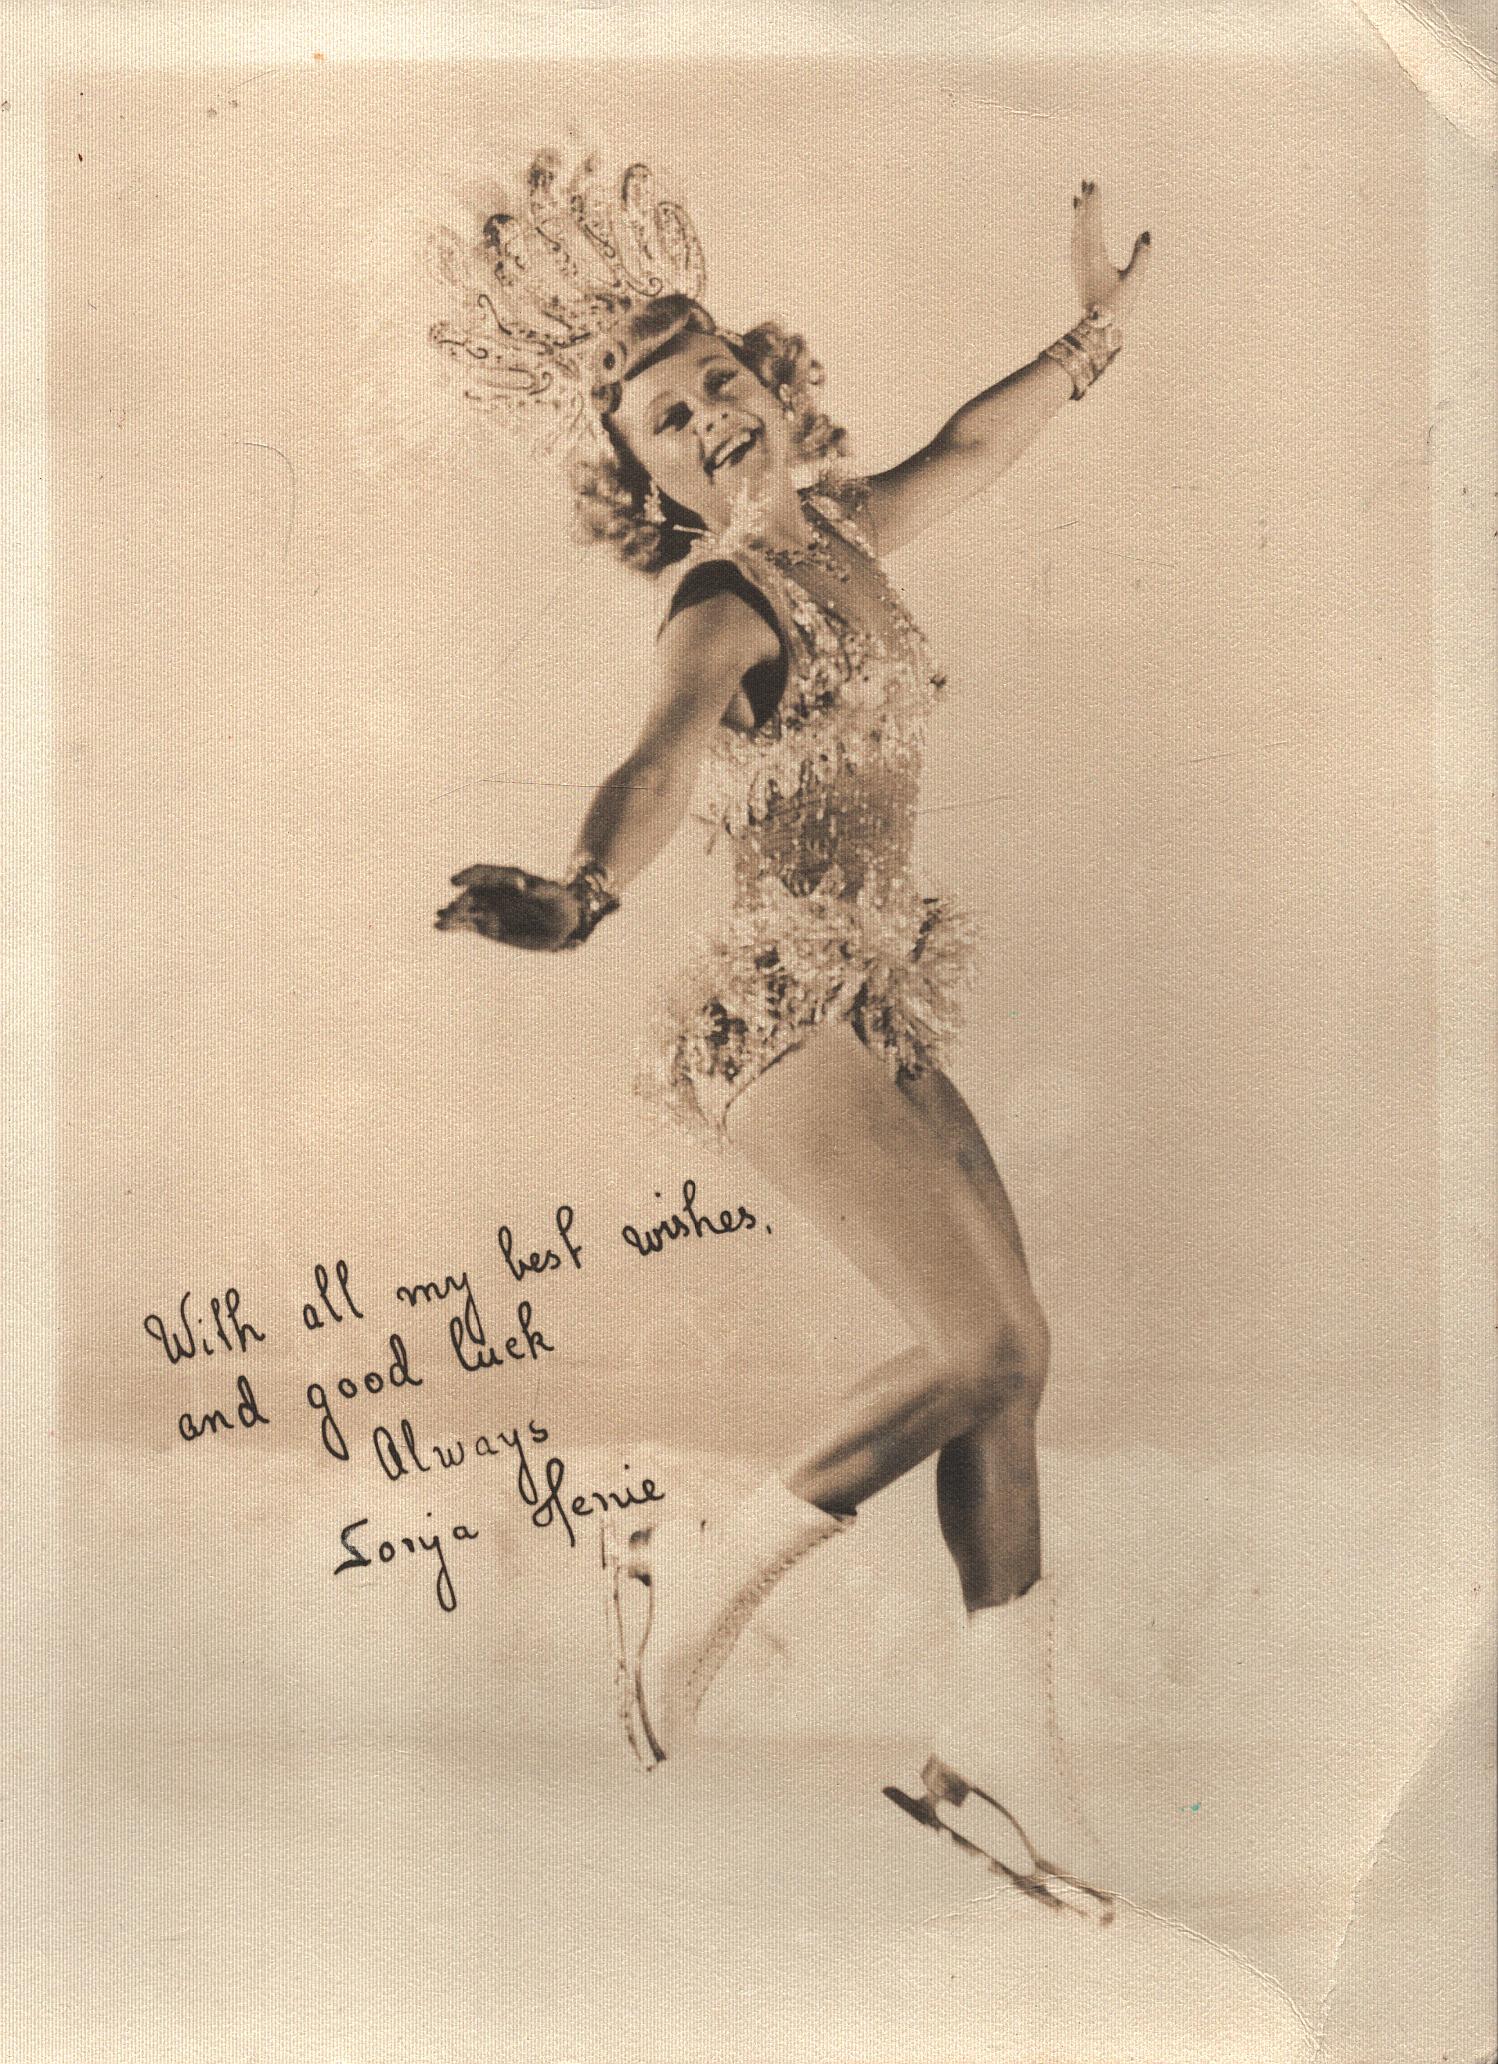 With all my best wishes.
and good luck
Always
Sonja Henie